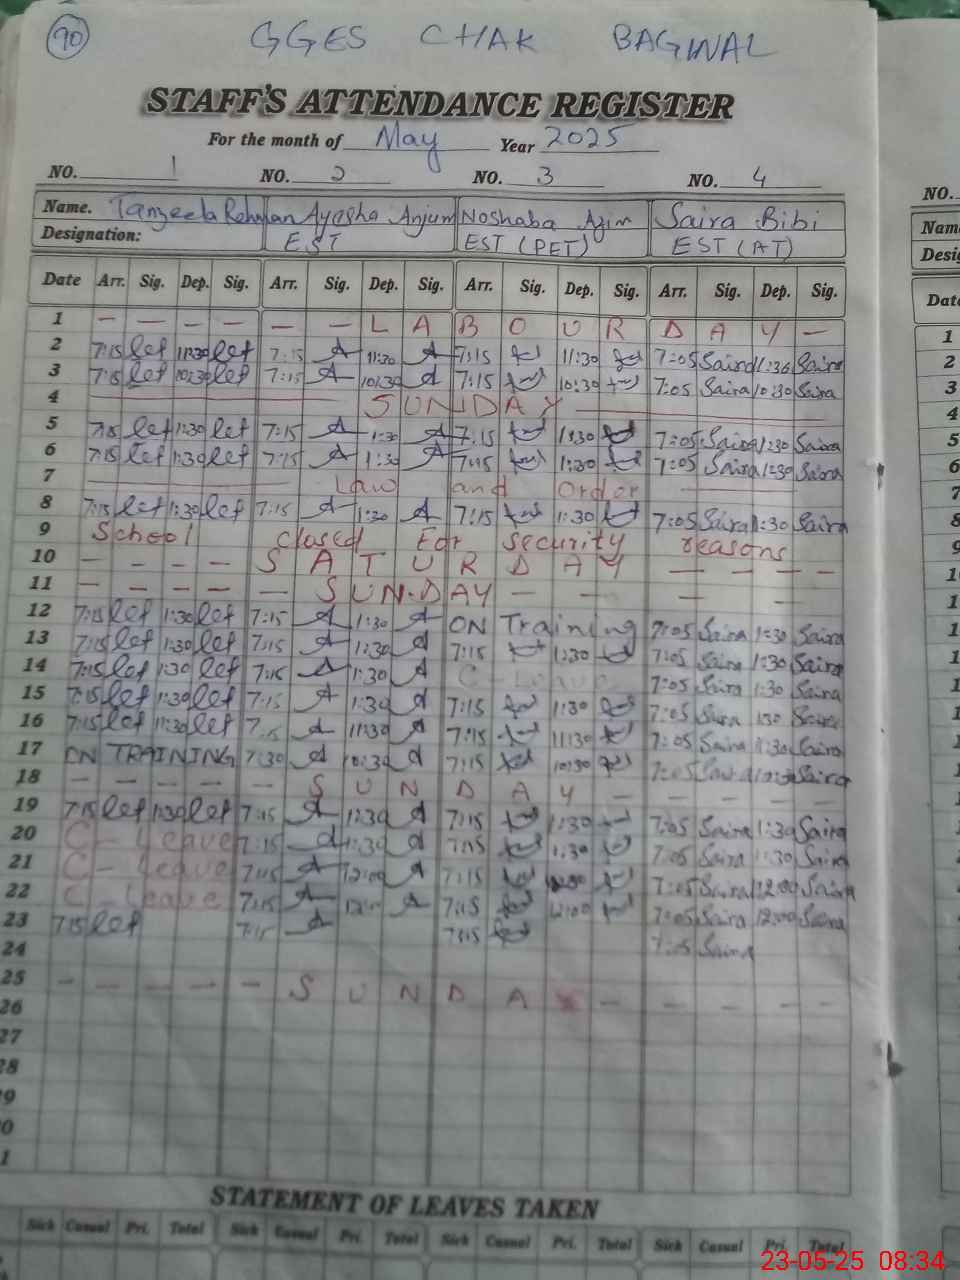 90 GGES CHAK BAGINAL
STAFF'S ATTENDANCE REGISTER
For the month of May Year 2025
NO. 1 NO. 2 NO. 3 NO. 4 NO.
Name. Tanzeela Rehman Ayesha Anjum Noshaba Azim Saira Bibi
Designation: EST EST (PET) EST (AT)
Date Arr. Sig. Dep. Sig. Arr. Sig. Dep. Sig. Arr. Sig. Dep. Sig. Arr. Sig. Dep. Sig.
1 – – – – – – L A B O U R D A Y –
2 7:15 11:30 7:15 11:30 7:15 11:30 7:05 Saira 11:30 Saira
3 7:15 10:30 7:15 10:30 7:15 10:30 7:05 Saira 10:30 Saira
4 SUNDAY
5 7:15 1:30 7:15 1:30 7:15 1:30 7:05 Saira 1:30 Saira
6 7:15 1:30 7:15 1:30 7:15 1:30 7:05 Saira 1:30 Saira
7 Law and Order
8 7:15 1:30 7:15 1:30 7:15 1:30 7:05 Saira 1:30 Saira
9 School closed For security reasons
10 – – – – S A T U R D A Y – – – –
11 – – – – – SUNDAY – – – –
12 7:15 1:30 7:15 1:30 ON Training 7:05 Saira 1:30 Saira
13 7:15 1:30 7:15 1:30 7:15 1:30 7:05 Saira 1:30 Saira
14 7:15 1:30 7:15 1:30 C - Leave 7:05 Saira 1:30 Saira
15 7:15 1:30 7:15 1:30 7:15 1:30 7:05 Saira 1:30 Saira
16 7:15 11:30 7:15 11:30 7:15 11:30 7:05 Saira 11:30 Saira
17 ON TRAINING 7:30 10:30 7:15 10:30 7:05 Saira
18 – – – – – S U N D A Y – – – – –
19 7:15 1:30 7:15 1:30 7:15 1:30 7:05 Saira 1:30 Saira
20 C - Leave 7:15 1:30 7:15 1:30 7:05 Saira 1:30 Saira
21 C - Leave 7:15 12:00 7:15 7:05 Saira 12:00 Saira
22 C - Leave 7:15 7:15 12:00 7:05 Saira 12:00 Saira
23 7:15 7:15 7:15 7:05 Saira
24
25 – – – – – S U N D A Y – – – –
26
27
28
9
0
1
STATEMENT OF LEAVES TAKEN
Sick Casual Pri. Total Sick Casual Pri. Total Sick Casual Pri. Total Sick Casual Pri. Total
23-05-25 08:34